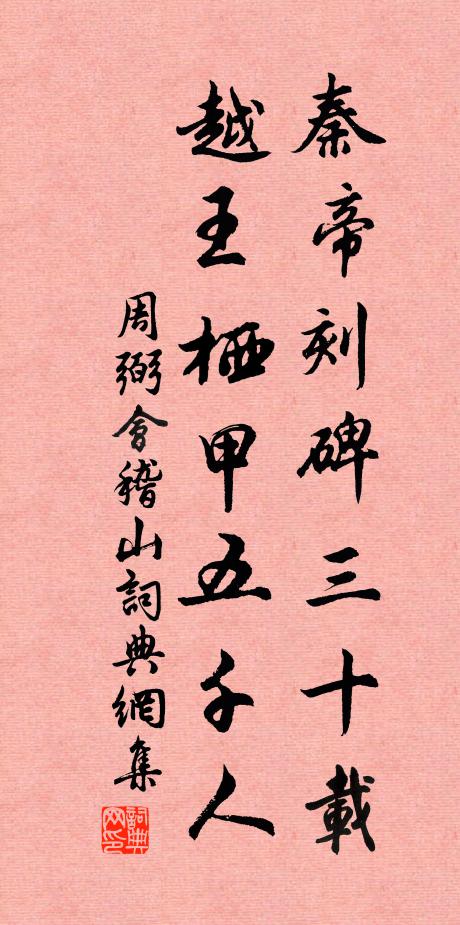 秦帝刻碑三十載
越王栖甲五千人
周弼會稽山詞典網集
詞典网印